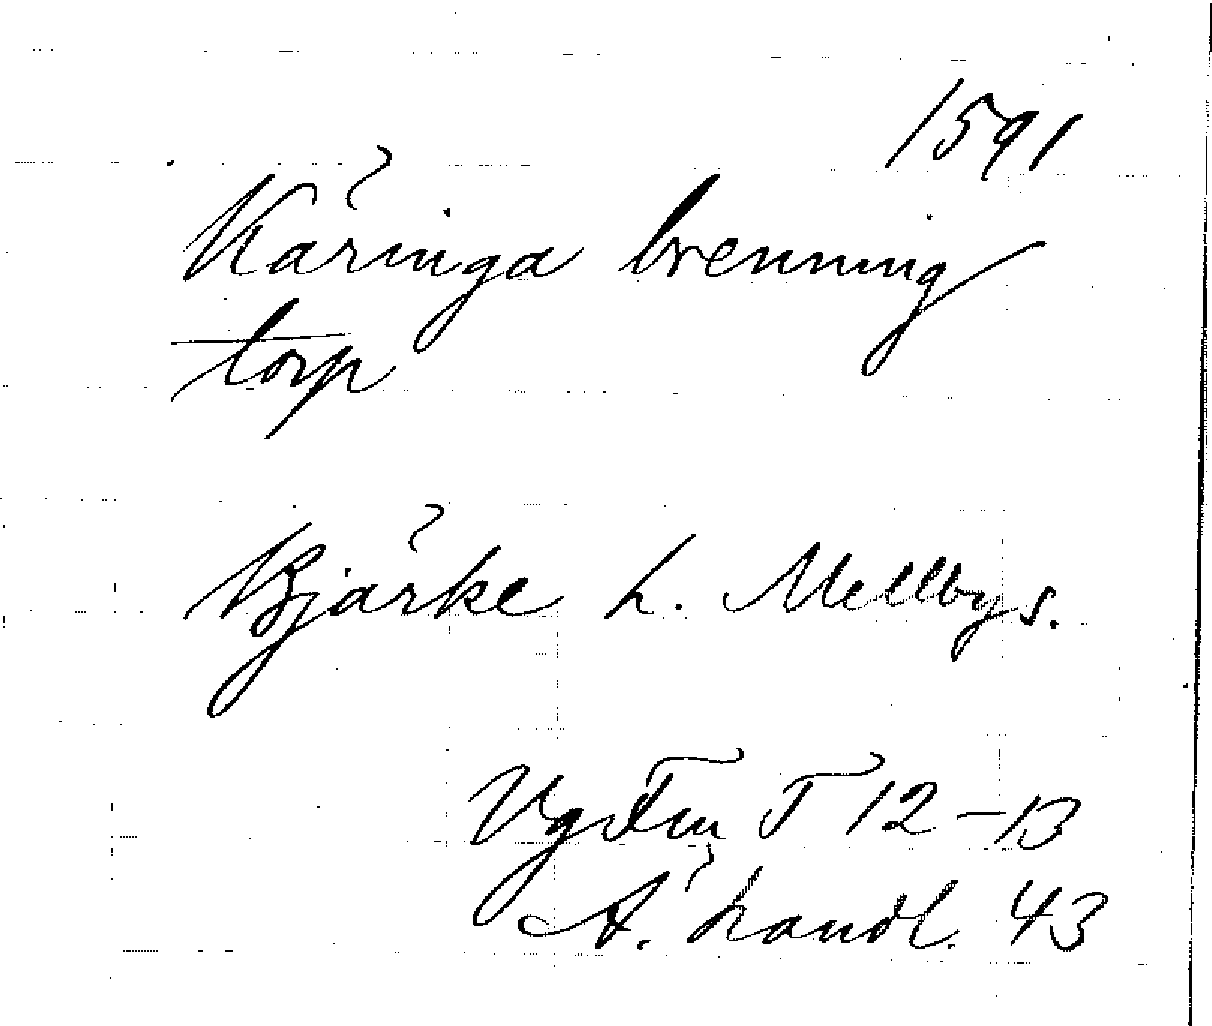 1591
Käringa brenning
torp
Bjärke h. Mellby s.
Vg T 12-13
Ä. handl. 43